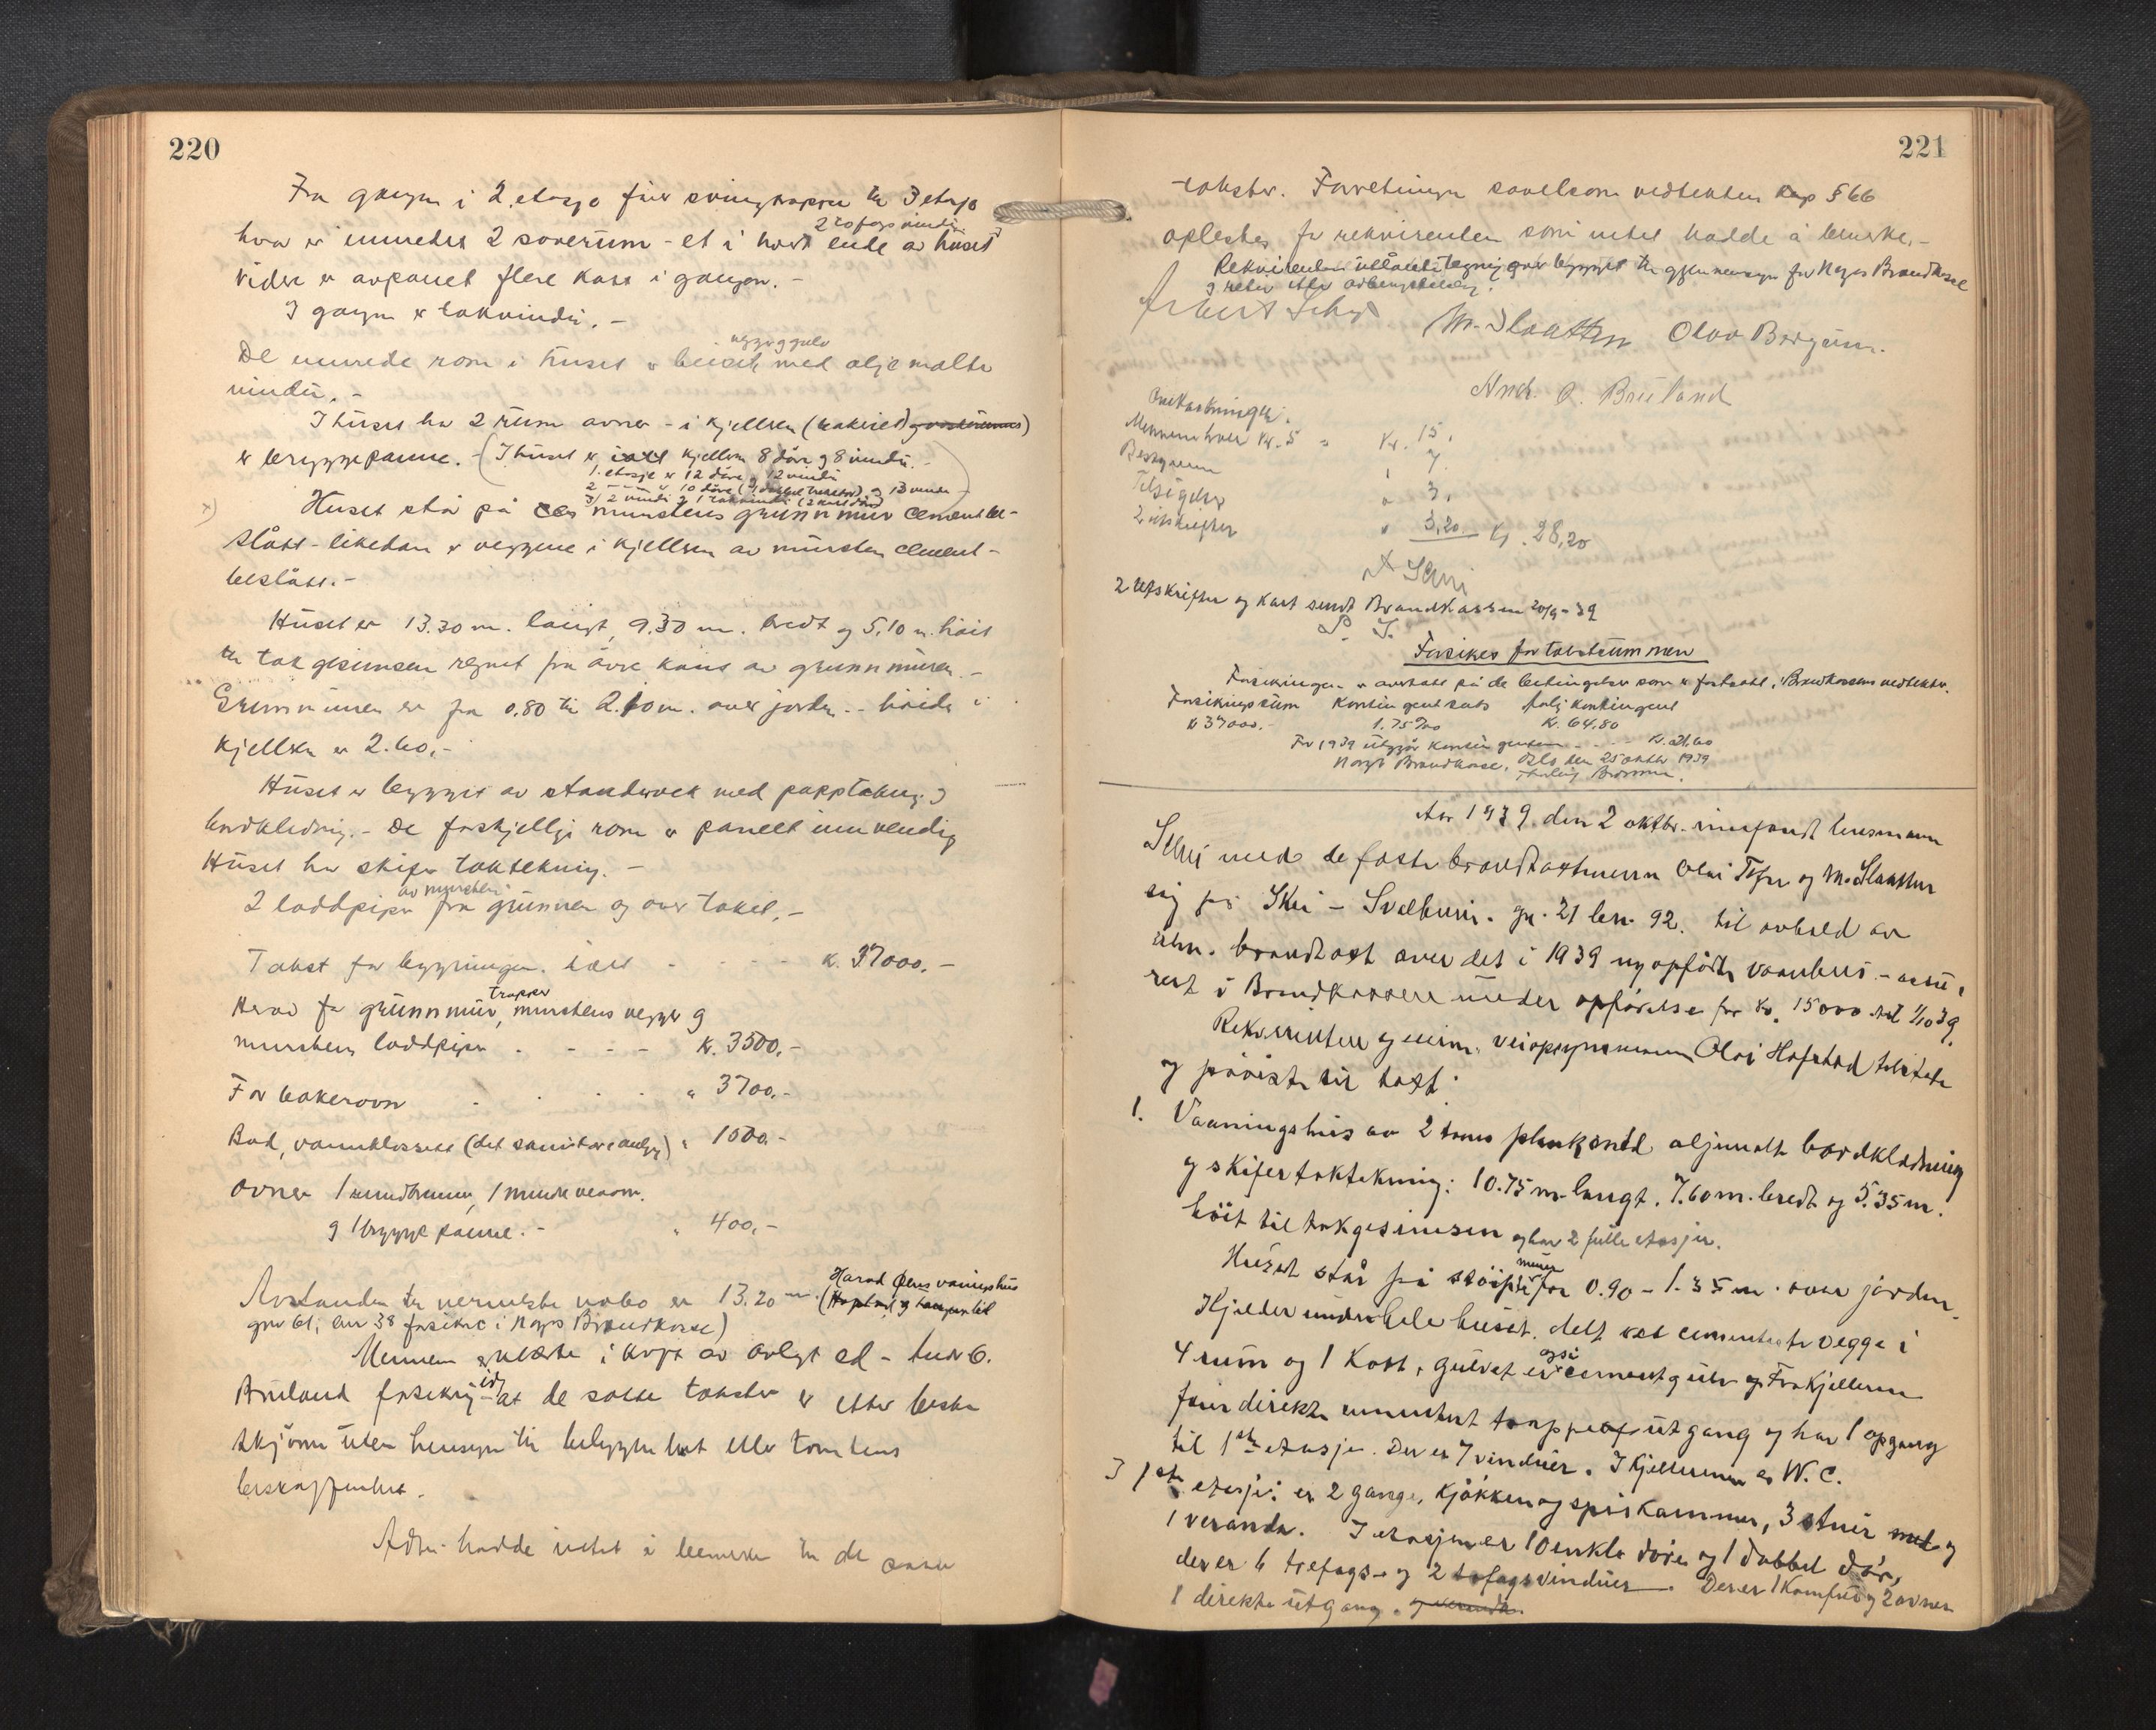 220
Fra gangen i 2. etasje fører svingtrapper til 3 etasje
2 tofags vindu
hvor er innredet 2 soverum - et i hvert ende av huset
videre er avpanelt flere kott i gangen. -
I gangen er takvindu. -
vegg og gulv
De innrede rom i huset er beiset med olje malte
vindu. -
I huset har 2 rum ovner - i kjelleren (bakeriet)
er bryggepanne. - (I huset er i kjelleren 8 døre og 8 vindu. -
1. etasje er 12 døre og 12 vindu
2 - - - er 10 døre ( ) og 13 vindu -
3/ 2 vindu og 1 takvindu
x) Huset står på murstens grunnmur cementbe-
slått - likedan er veggene i kjelleren av mursten cement-
beslått. -
Huset er 13.30 m. langt, 9.30 m. bredt og 5,10 m. høit
til takgesimsen regnet fra øvre kant av grunnmuren. -
Grunnmuren er fra 0.80 til 2.10 m. over jorden. - høide i
kjelleren er 2.60. -
Huset er bygget av standverk med papptekning og
bordkledning. - De forskjellige rom er panelt innvendig
Huset har skifer taktekning. -
av mursten
2 loddpiper fra grunnen og over taket. -
Takst for bygningen i alt - - - - k. 37000. -
trapper
Herav for grunnmur, murstens vegger og
murstens loddpiper . - - - k. 3500, -
For bakerovn - . . . . " 3700. -
Bad, vannklossett (det sanitære anlegg) " 1500. -
ovner 1 rundbrenner, 1
og 1 bryggepanne. - " 400, -
Avstanden til nermeste nabo er 13.20 m. (Harad Øens vaaningshus
gnr 61, bnr 38 forsikret i Norges Brandkasse)
Mennene avla i kraft av avlagt ed - And O.
Bruland forsikring - at de satte takster er etter beste
skjønn uten hensyn til beliggenhet eller tomtens
beskaffenhet.
Adm. hadde intet å bemerke til de satte
221
takster. Forretningen såvelsom vedtekten kap § 66
oplestes for rekvirenten som intet hadde å bemerke. -
Rekvirenten tegning over bygget til gjennemsyn for Norges Brandkasse
og retur etter avbenyttelse.
M. Slaatten Olav Bergum.
And. O. Bruland
Omkostninger.
Mennene hver kr. 5 = Kr. 15.
Bestyreren " 7.
Tilsigelse " 3.
2 utskrifter " 3,20 Kr. 28,20
A Schei
2 utskrifter og kart sendt Brandkassen 20/9 - 39
Forsikres for takstsummen
Forsikringen er avsluttet på de betingelser som er fastsatt i Brandkassens vedtekter.
Forsikringssum Kontingentsats Årlig kontingent
kr 37000. - 1.75 ‰ Kr. 64.80
For 1939 utgjør kontingenten - - - - Kr. 21,60
Norges Brandkasse, Oslo den 25 oktbr 1939
Aar 1939 den 2 oktbr. innfandt lensmann
Schei med de faste brandtakstmenn Olai Tefre og M. Slaatten
sig på Skei - Svelbuvi. gr. 21 br. 92. til avhold av
alm. brandtakst over det i 1939 nyopførte vaanhus - assu-
rert i Brandkassen under opførelse for kr. 15000 1/10 39.
Rekvirenten og eieren, veiopsynsmann Olai Hafstad tilstede
og påviste til takst:
1. Vaaningshus av 2 toms plank med oljemalt bordkledning
og skifertaktekning: 10.75 m. langt. 7.60 m. bredt og 5.35 m.
høit til takgesimsen og har 2 fulle etasjer.
mur
Huset står på støipt fra 0.90 - 1.35 m. over jorden.
Kjelder under hele huset. delt ved cementerte vegge i
også
4 rum og 1 Kott, gulvet er cementgulv og Fra kjelleren
fører direkte cementert trappe utgang og har 1 opgang
til 1ste etasje. Der er 7 vinduer. I kjelleren er W. C.
I 1ste etasje: er 2 gange, kjøkken og spiskammer, 3 stuer og
1 veranda. I etasjen er 10 enkle døre og 1 dobbel dør,
der er 6 trefags- og 2 tofagsvinduer. Der er 1 Komfur og 2 ovner
1 direkte utgang.